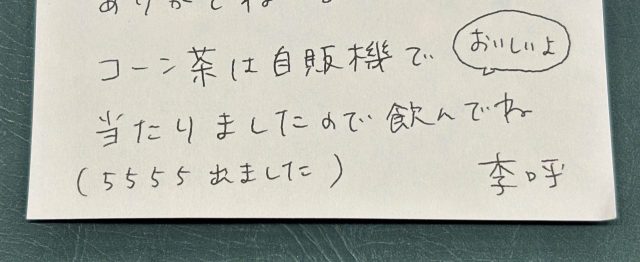 ありがとね
コーン茶は自販機で
おいしいよ
当たりましたので飲んでね
(5555 出ました)
李呼